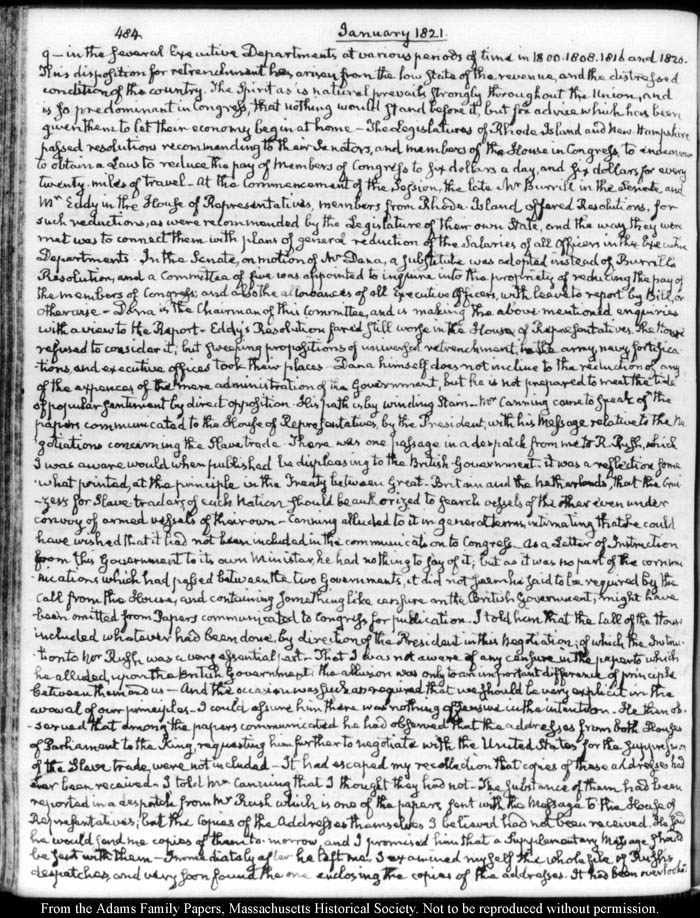 484. January 1821.
9 – in the several Executive Departments at various periods of time in 1800. 1808. 1816 and 1820.
This disposition for retrenchment has arisen from the low State of the revenue, and the distressed
condition of the country. The Spirit as is natural prevails strongly throughout the Union, and
is so predominant in Congress, that nothing would stand before it, but for advice which has been
given them to let their economy begin at home – The Legislatures of Rhode Island and New Hampshire
passed resolutions recommending to their Senators, and members of the House in Congress to endeavour
to obtain a Law to reduce the pay of Members of Congress to six dollars a day, and six dollars for every
twenty miles of travel – At the commencement of the Session, the late Mr Burrill in the Senate, and
Mr Eddy in the House of Representatives, members from Rhode Island, offered Resolutions, for
such reductions, as were recommended by the Legislature of their own State, and the way they were
met was to connect them with plans of general reduction of the Salaries of all Officers in the Executive
Departments. In the Senate, on motion of Mr Dana, a substitute was adopted instead of Burrill's
Resolution, and a Committee of five was appointed to inquire into the propriety of reducing the pay of
the members of Congress; and also the allowances of all Executive Officers, with leave to report by Bill, or
otherwise – Dana is the Chairman of this Committee, and is making the above mentioned enquiries
with a view to the Report – Eddy's Resolution fared still worse in the House of Representatives. The House
refused to consider it; but sweeping propositions of universal retrenchment, in the army, navy, fortifica
tions, and executive offices took their places – Dana himself does not incline to the reduction of any
of the expences of the mere administration of the Government, but he is not prepared to meet the tide
of popular sentiment by direct opposition. His path is by winding Stairs – Mr Canning came to speak of the
papers communicated to the House of Representatives, by the President, with his Message relative to the Ne
gotiations concerning the Slave trade. There was one passage in a despatch from me to R. Rush, which
I was aware would when published be displeasing to the British Government. it was a reflection some
what pointed, at the principle in the Treaty between Great-Britain and the Netherlands, that the Crui
zers for Slave traders of each Nation should be authorized to search vessels of the other even under
convoy of armed vessels of their own – Canning alluded to it in general terms, intimating that he could
have wished that it had not been included in the communication to Congress – As a Letter of Instruction
from this Government to its own Minister, he had nothing to say of it; but as it was no part of the commu
nications which had passed between the two Governments, it did not seem he said to be required by the
Call from the House, and containing something like censure on the British Government, might have
been omitted from Papers communicated to Congress for publication. I told him that the Call of the House
included whatever had been done, by direction of the President in this negotiation; of which the Instruc
tion to Mr Rush was a very essential part – That I was not aware of any censure in the paper to which
he alluded, upon the British Government; the allusion was only to an important difference of principle
between them and us – And the occasion was such as required that we should be very explicit in the
avowal of our principles – I could assure him there was nothing offensive in the intention – He then ob
served that among the papers communicated he had observed that the addresses from both Houses
of Parliament to the King, requesting him further to negotiate with the United States for the suppression
of the Slave trade, were not included – It had escaped my recollection that copies of these addresses had
ever been received – I told Mr Canning that I thought they had not – The substance of them had been
reported in a despatch from Mr Rush which is one of the papers sent with the Message to the House of
Representatives; but the copies of the Addresses themselves, I believed had not been received. He said
he would send me copies of them to-morrow, and I promised him that a Supplementary Message should
be sent with them – Immediately after he left me, I examined myself the whole file of Rush's
despatches, and very soon found the one enclosing the copies of the addresses. It had been overlooked
From the Adams Family Papers, Massachusetts Historical Society. Not to be reproduced without permission.